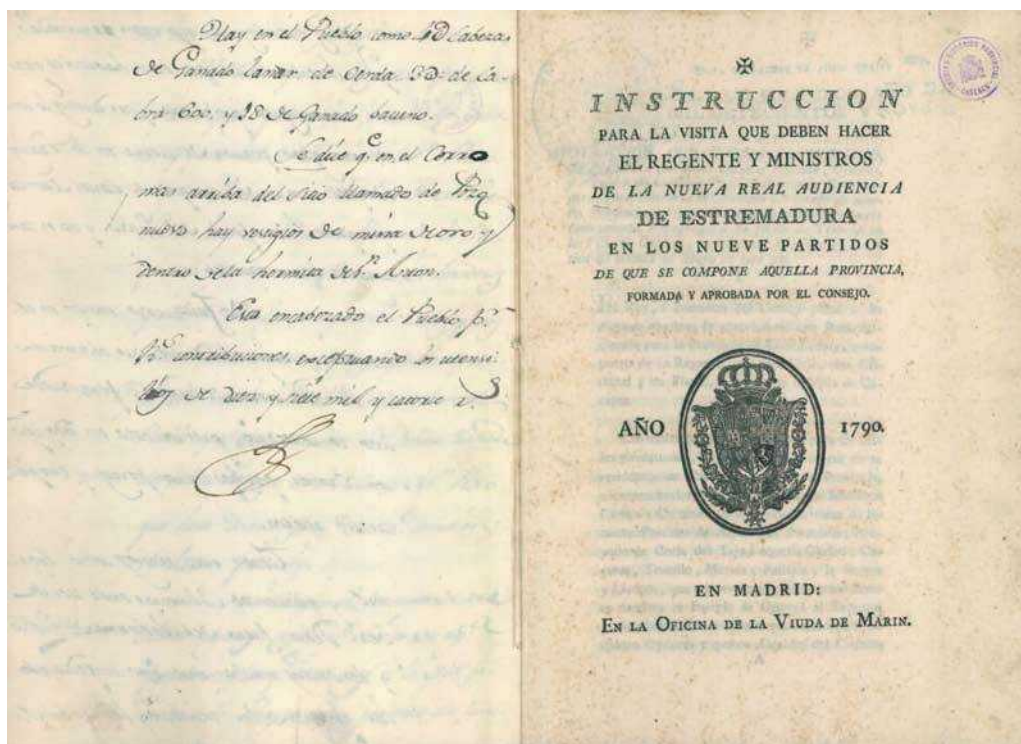 Hay en el Pueblo como 4D Cabezas
de Ganado lanar de Cerda 3D de Ca-
brio 600. y 18 de Ganado bacuno.
Se dice q. en el Corro
mas arriba del sitio llamado de Pozo
nuebo hay vestigios de mina de oro y
dentro de la hermita de Sn. Anton.
Esta encabezado el Pueblo pr.
contribuciones, exceptuando los utensi-
lios de diez y siete mil y catorce r.s
✠
INSTRUCCION
PARA LA VISITA QUE DEBEN HACER
EL REGENTE Y MINISTROS
DE LA NUEVA REAL AUDIENCIA
DE ESTREMADURA
EN LOS NUEVE PARTIDOS
DE QUE SE COMPONE AQUELLA PROVINCIA,
FORMADA Y APROBADA POR EL CONSEJO.
AÑO 1790.
EN MADRID:
EN LA OFICINA DE LA VIUDA DE MARIN.